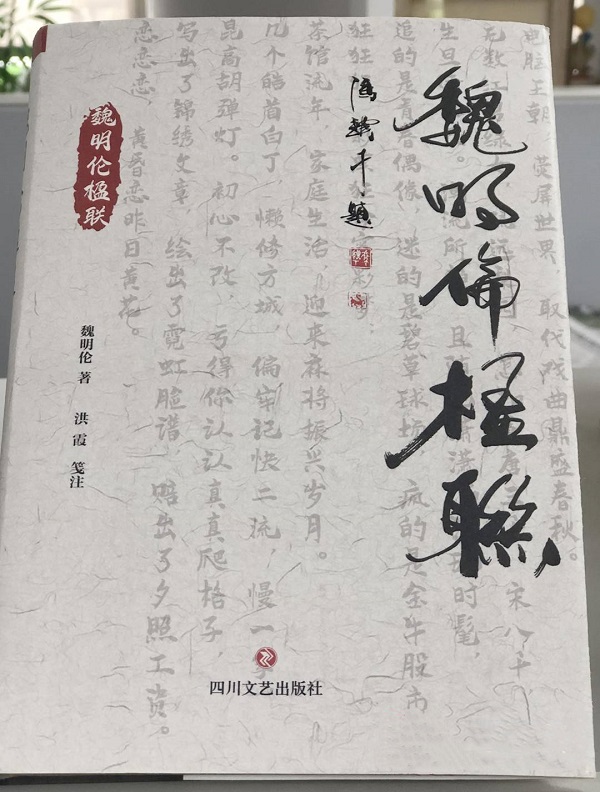 魏明倫楹聯
馮驥才題
魏明伦楹联
魏明伦 著
洪霞 笺注
四川文艺出版社
电脑王朝，荧屏世界，取代戏曲鼎盛春秋。
追的是青春偶像，迷的是碧草球场，疯的是金牛股市
狂狂狂
茶馆流年，家庭生活，迎来麻将振兴岁月。
几个皓首白丁，懒倚方城，偏牢记快二流，慢一
昆高胡弹灯。初心不改，亏得你认认真真爬格子，
写出了锦绣文章，绘出了霓虹脸谱，赔出了夕照工资。
恋恋恋，黄昏恋昨日黄花。